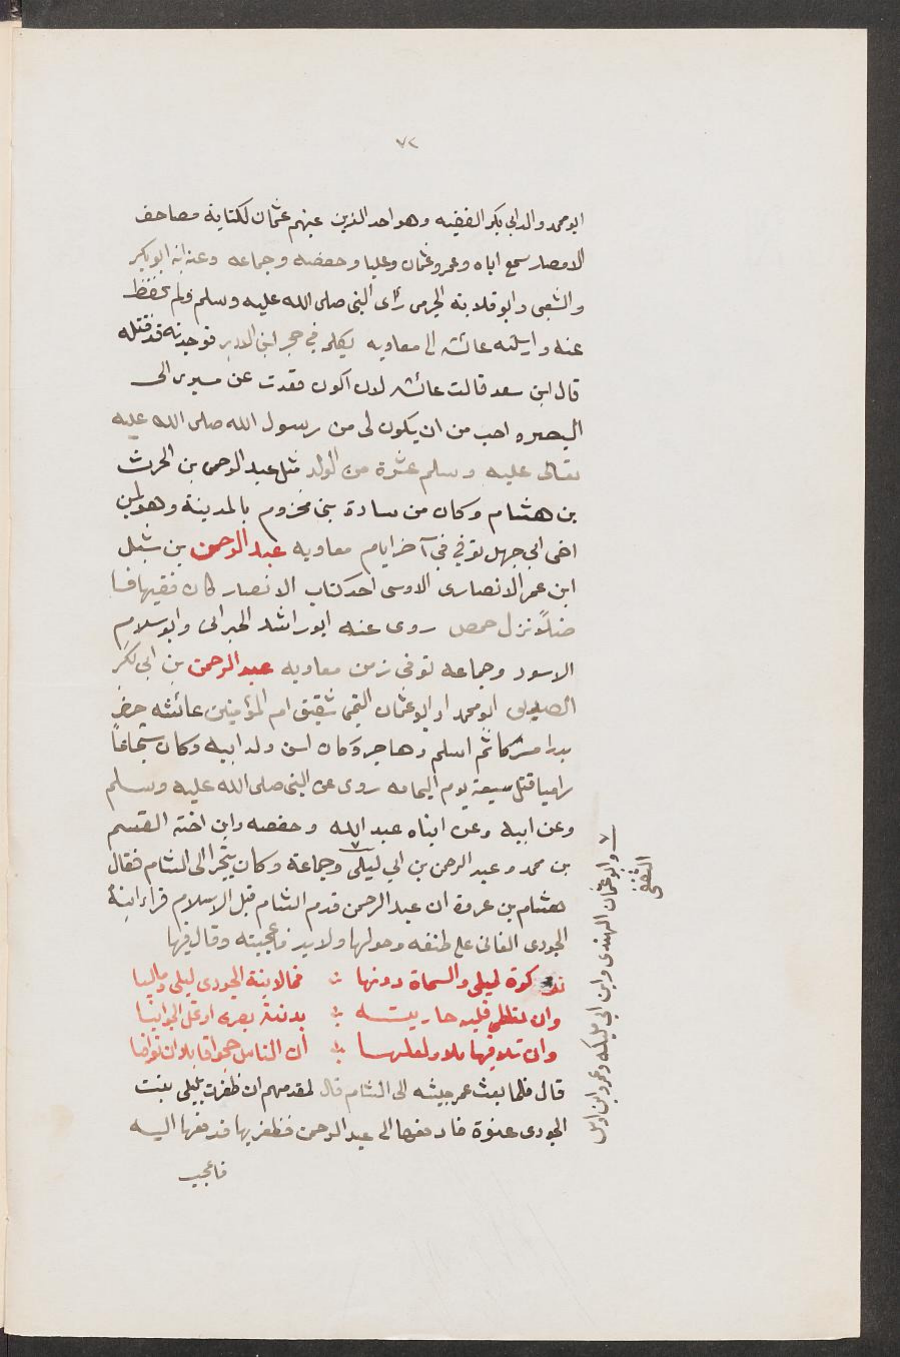 ٧٢
ابو محمد والد ابي بكر الفقيه وهو احد الذين عينهم عثمان لكتابة مصاحف
الامصار سمع اباه وعمر وعثمان وعليا وحفصه وجماعه وعنه ابنه ابو بكر
والشعبي وابو قلابة الجرمى رأى النبى صلى الله عليه وسلم ولم يحفظ
عنه وارسلته عائشه الى معاويه يكلمه في حجر ابن الادبر فوجدته قد قتله
قال ابن سعد قالت عائشه لان اكون قعدت عن مسيرى الى
البصره احب من ان يكون لى من رسول الله صلى الله عليه
تعالى عليه وسلم عشرة من الولد مثل عبد الرحمن بن الحرث
بن هشام وكان من سادة بنى مخزوم بالمدينة وهو ابن
اخى ابى جهل توفي في آخر ايام معاويه عبد الرحمن بن شبل
ابن عمر الانصارى الاوسى احد كتاب الانصار كان فقيها فا
ضلاً نزل حمص روى عنه ابو راشد الحبرانى وابو سلام
الاسود وجماعه توفى زمن معاويه عبد الرحمن بن ابى بكر
الصديق ابو محمد او ابو عثمان التيمى شقيق ام المؤمنين عائشه حضر
بدرا مشركا ثم اسلم وهاجر وكان اسن ولد ابيه وكان شجاعاً
راميا قتل سبعة يوم اليمامه روى عن النبى صلى الله عليه وسلم
وعن ابيه وعن ابناه عبد الله وحفصه وابن اخته القسم
بن محمد وعبد الرحمن بن ابي ليلى وجماعة وكان يتجر الى الشام فقال
هشام بن عروة ان عبد الرحمن قدم الشام قبل الاسلام فراء ابنة
الجودى الغانى على طنفه وحولها ولايد فاعجبته وقال فيها
تذكرة ليلى والسماة دونها فما لابنة الجودى ليلى وماليا
وان تعاطى قلبه حاريته بدنية بصرى او تحل الجوابيا
وانى تلاقيها بلا ولعلها ان الناس حجوا قابلا ان توافيا
قال فلما بعث عمر جيشه الى الشام قال لمقدمهم ان ظفرت بليلى بنت
الجودى عنوة فادفعها الى عبد الرحمن فظفر بها فدفعها اليه
فاعجب
وابو عثمان النهدى وابن ابي مليكه وعمرو ابن اوس
الثقفى